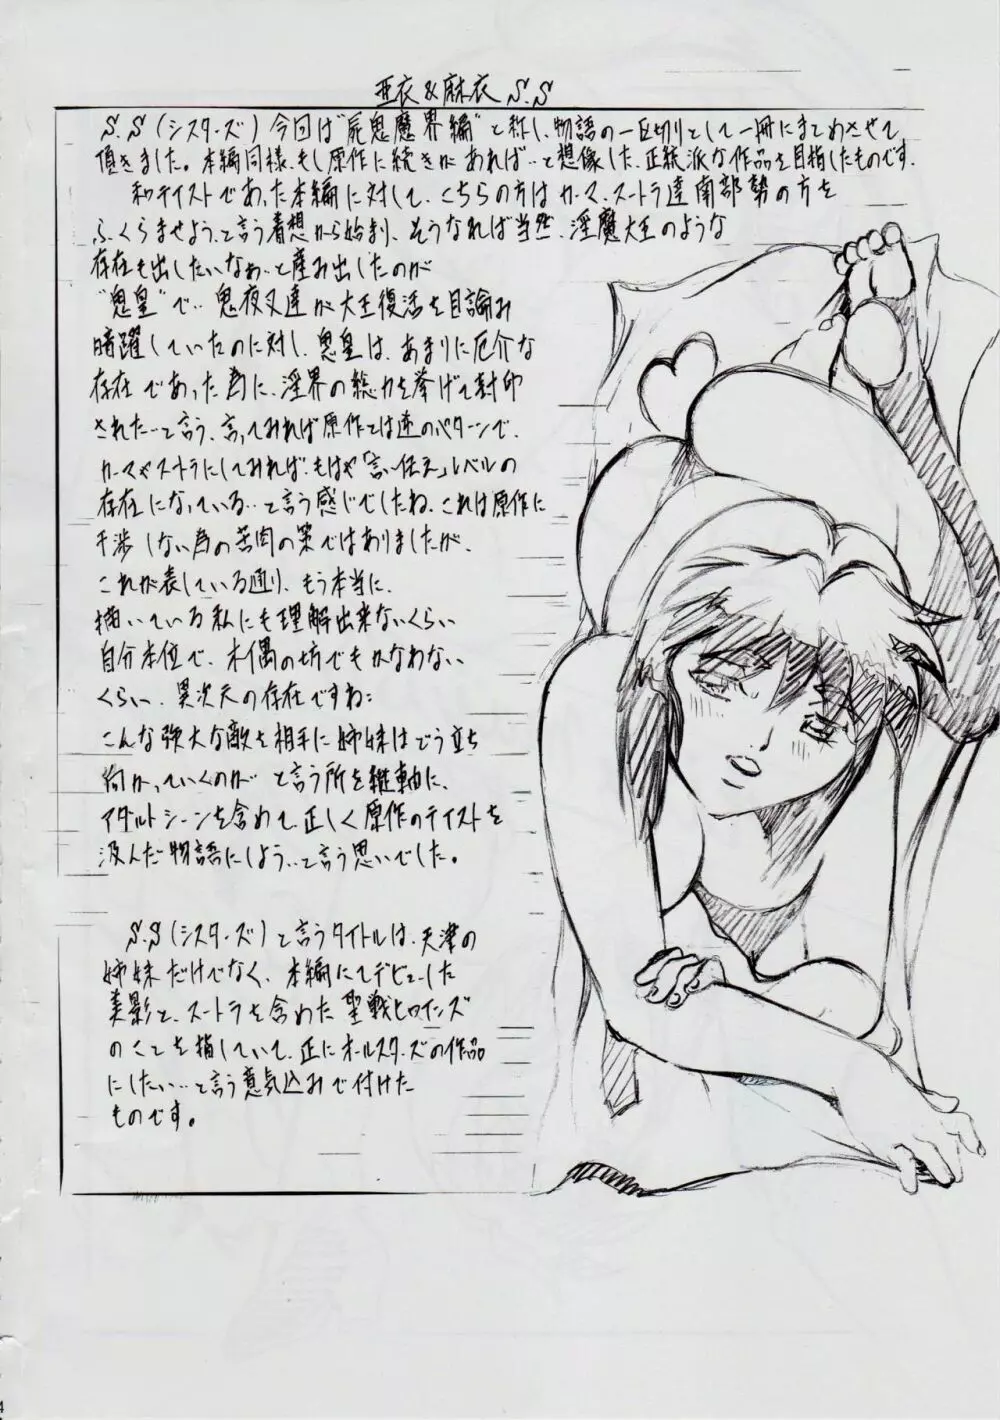 亜衣&麻衣 S.S
S.S(シスターズ)今回は"屍鬼魔界編"と称し、物語の一区切りとして一冊にまとめさせて
頂きました。本編同様、もし原作に続きがあれば…と想像した、正統派な作品を目指したものです。
和テイストであった本編に対して、こちらの方はカーマ、スートラ達南部勢の方を
ふくらませよう、と言う着想から始まり、そうなれば当然、淫魔大王のような
存在も出したいなぁ…と産み出したのが
"鬼皇"で… 鬼夜叉達が大王復活を目論み
暗躍していたのに対し、鬼皇は、あまりに厄介な
存在であった為に、淫界の総力を挙げて封印
された…と言う、言ってみれば原作とは逆のパターンで、
カーマやスートラにしてみれば、もはや「言い伝え」レベルの
存在になっている…と言う感じでしたね。これは原作に
干渉しない為の苦肉の策ではありましたが、
これが表している通り、もう本当に、
描いている私にも理解出来ないくらい
自分本位で、木偶の坊でもかなわない
くらい、異次元の存在ですね:
こんな強大な敵を相手に姉妹はどう立ち
向かっていくのか と言う所を縦軸に、
アダルトシーンを含めて、正しく原作のテイストを
汲んだ物語にしよう…と言う思いでした。
S.S(シスターズ)と言うタイトルは、天津の
姉妹だけでなく、本編にてデビューした
美影と、スートラを含めた聖戦ヒロインズ
のことを指していて、正にオールスターズの作品
にしたい…と言う意気込みで付けた
ものです。